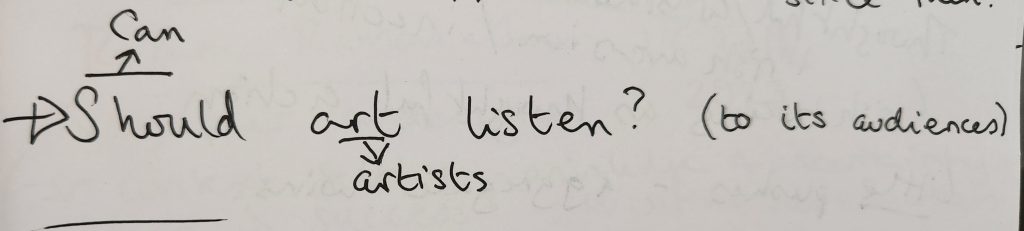 since then.
Can
Should art listen? (to its audiences)
artists